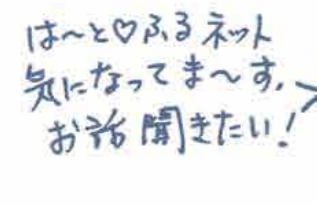 は〜と♡ふるネット
気になってま〜す。
お話聞きたい！